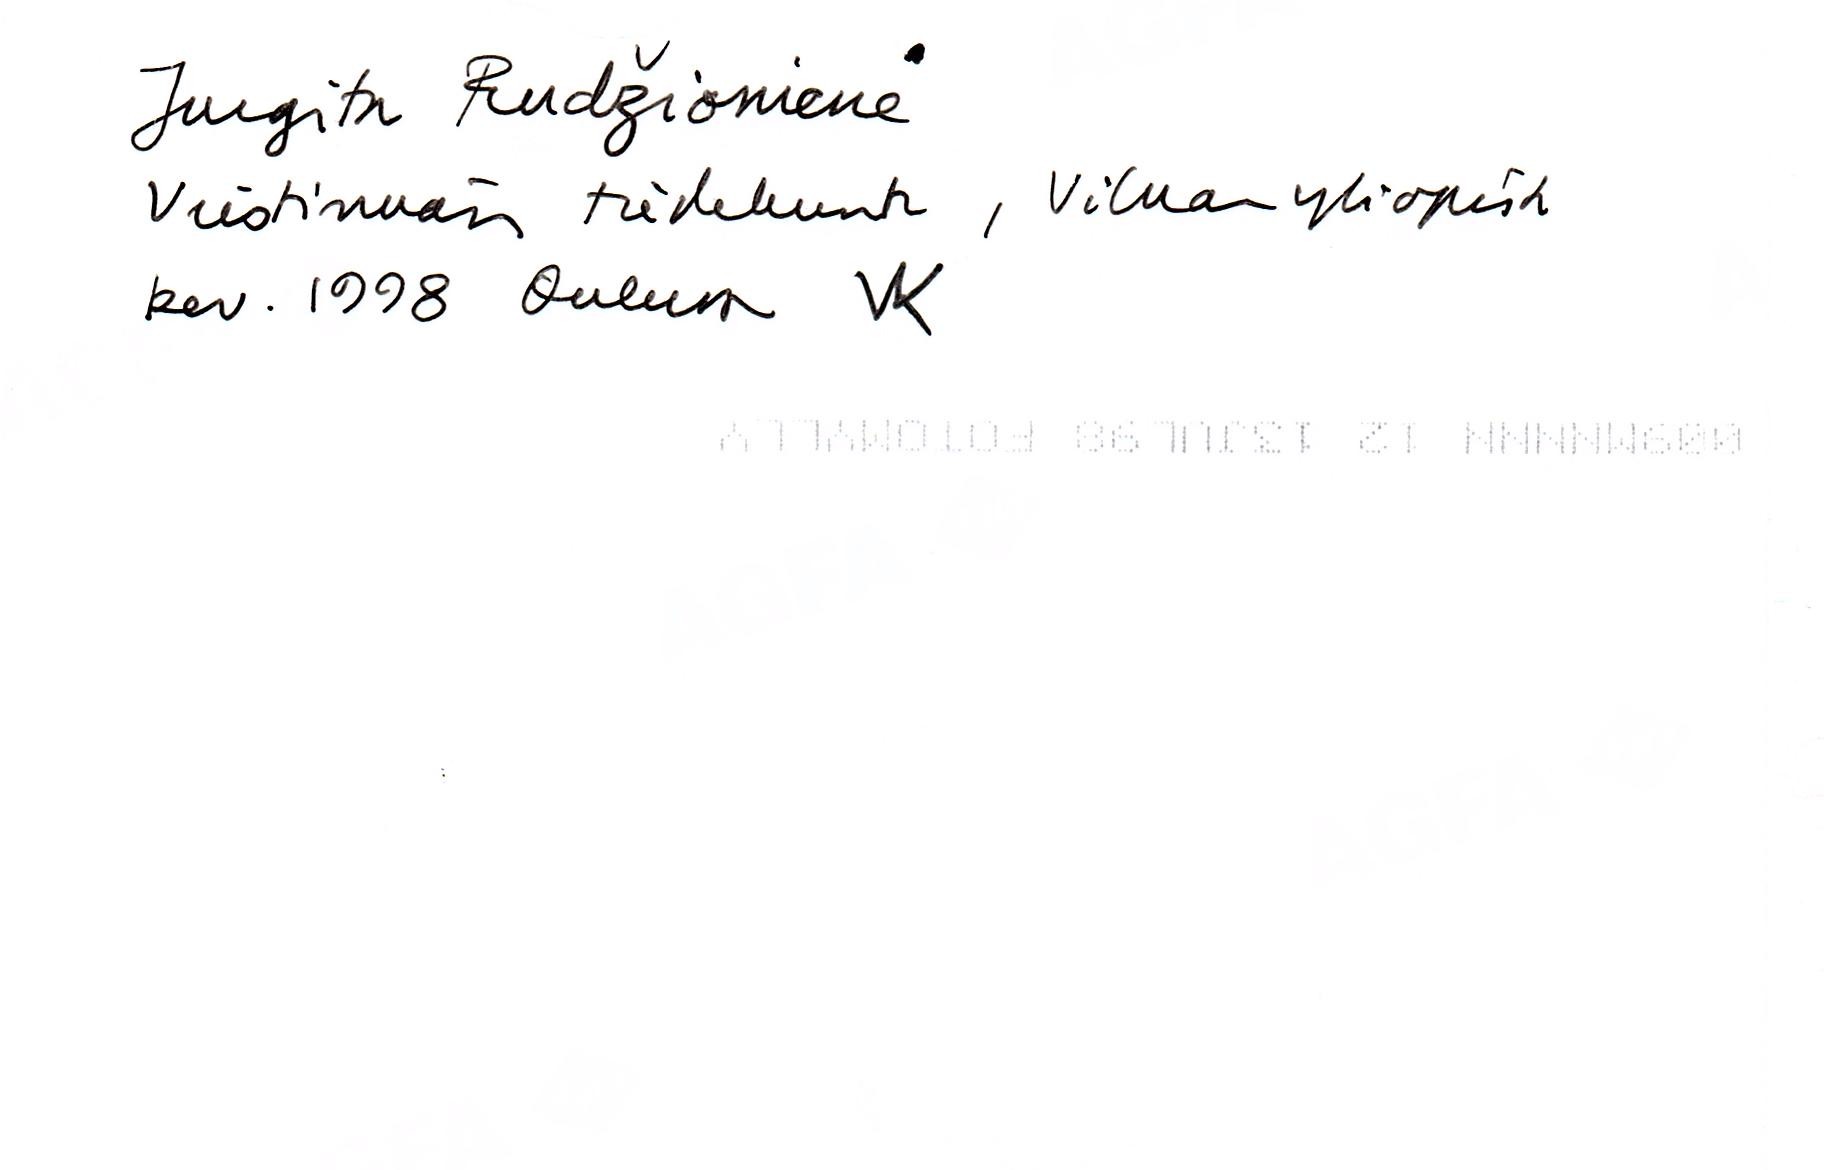 Jurgita Rudžionienė
Viestinnän tiedekunta, Vilnan yliopisto
kev. 1998 Oulussa VK
009MNNNN 12 13JUL98 FOTOMYLLY
AGFA
AGFA